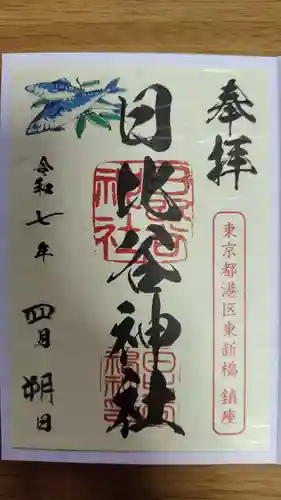 奉拝
東京都港区東新橋鎮座
日比谷神社
令和七年 四月 朔日